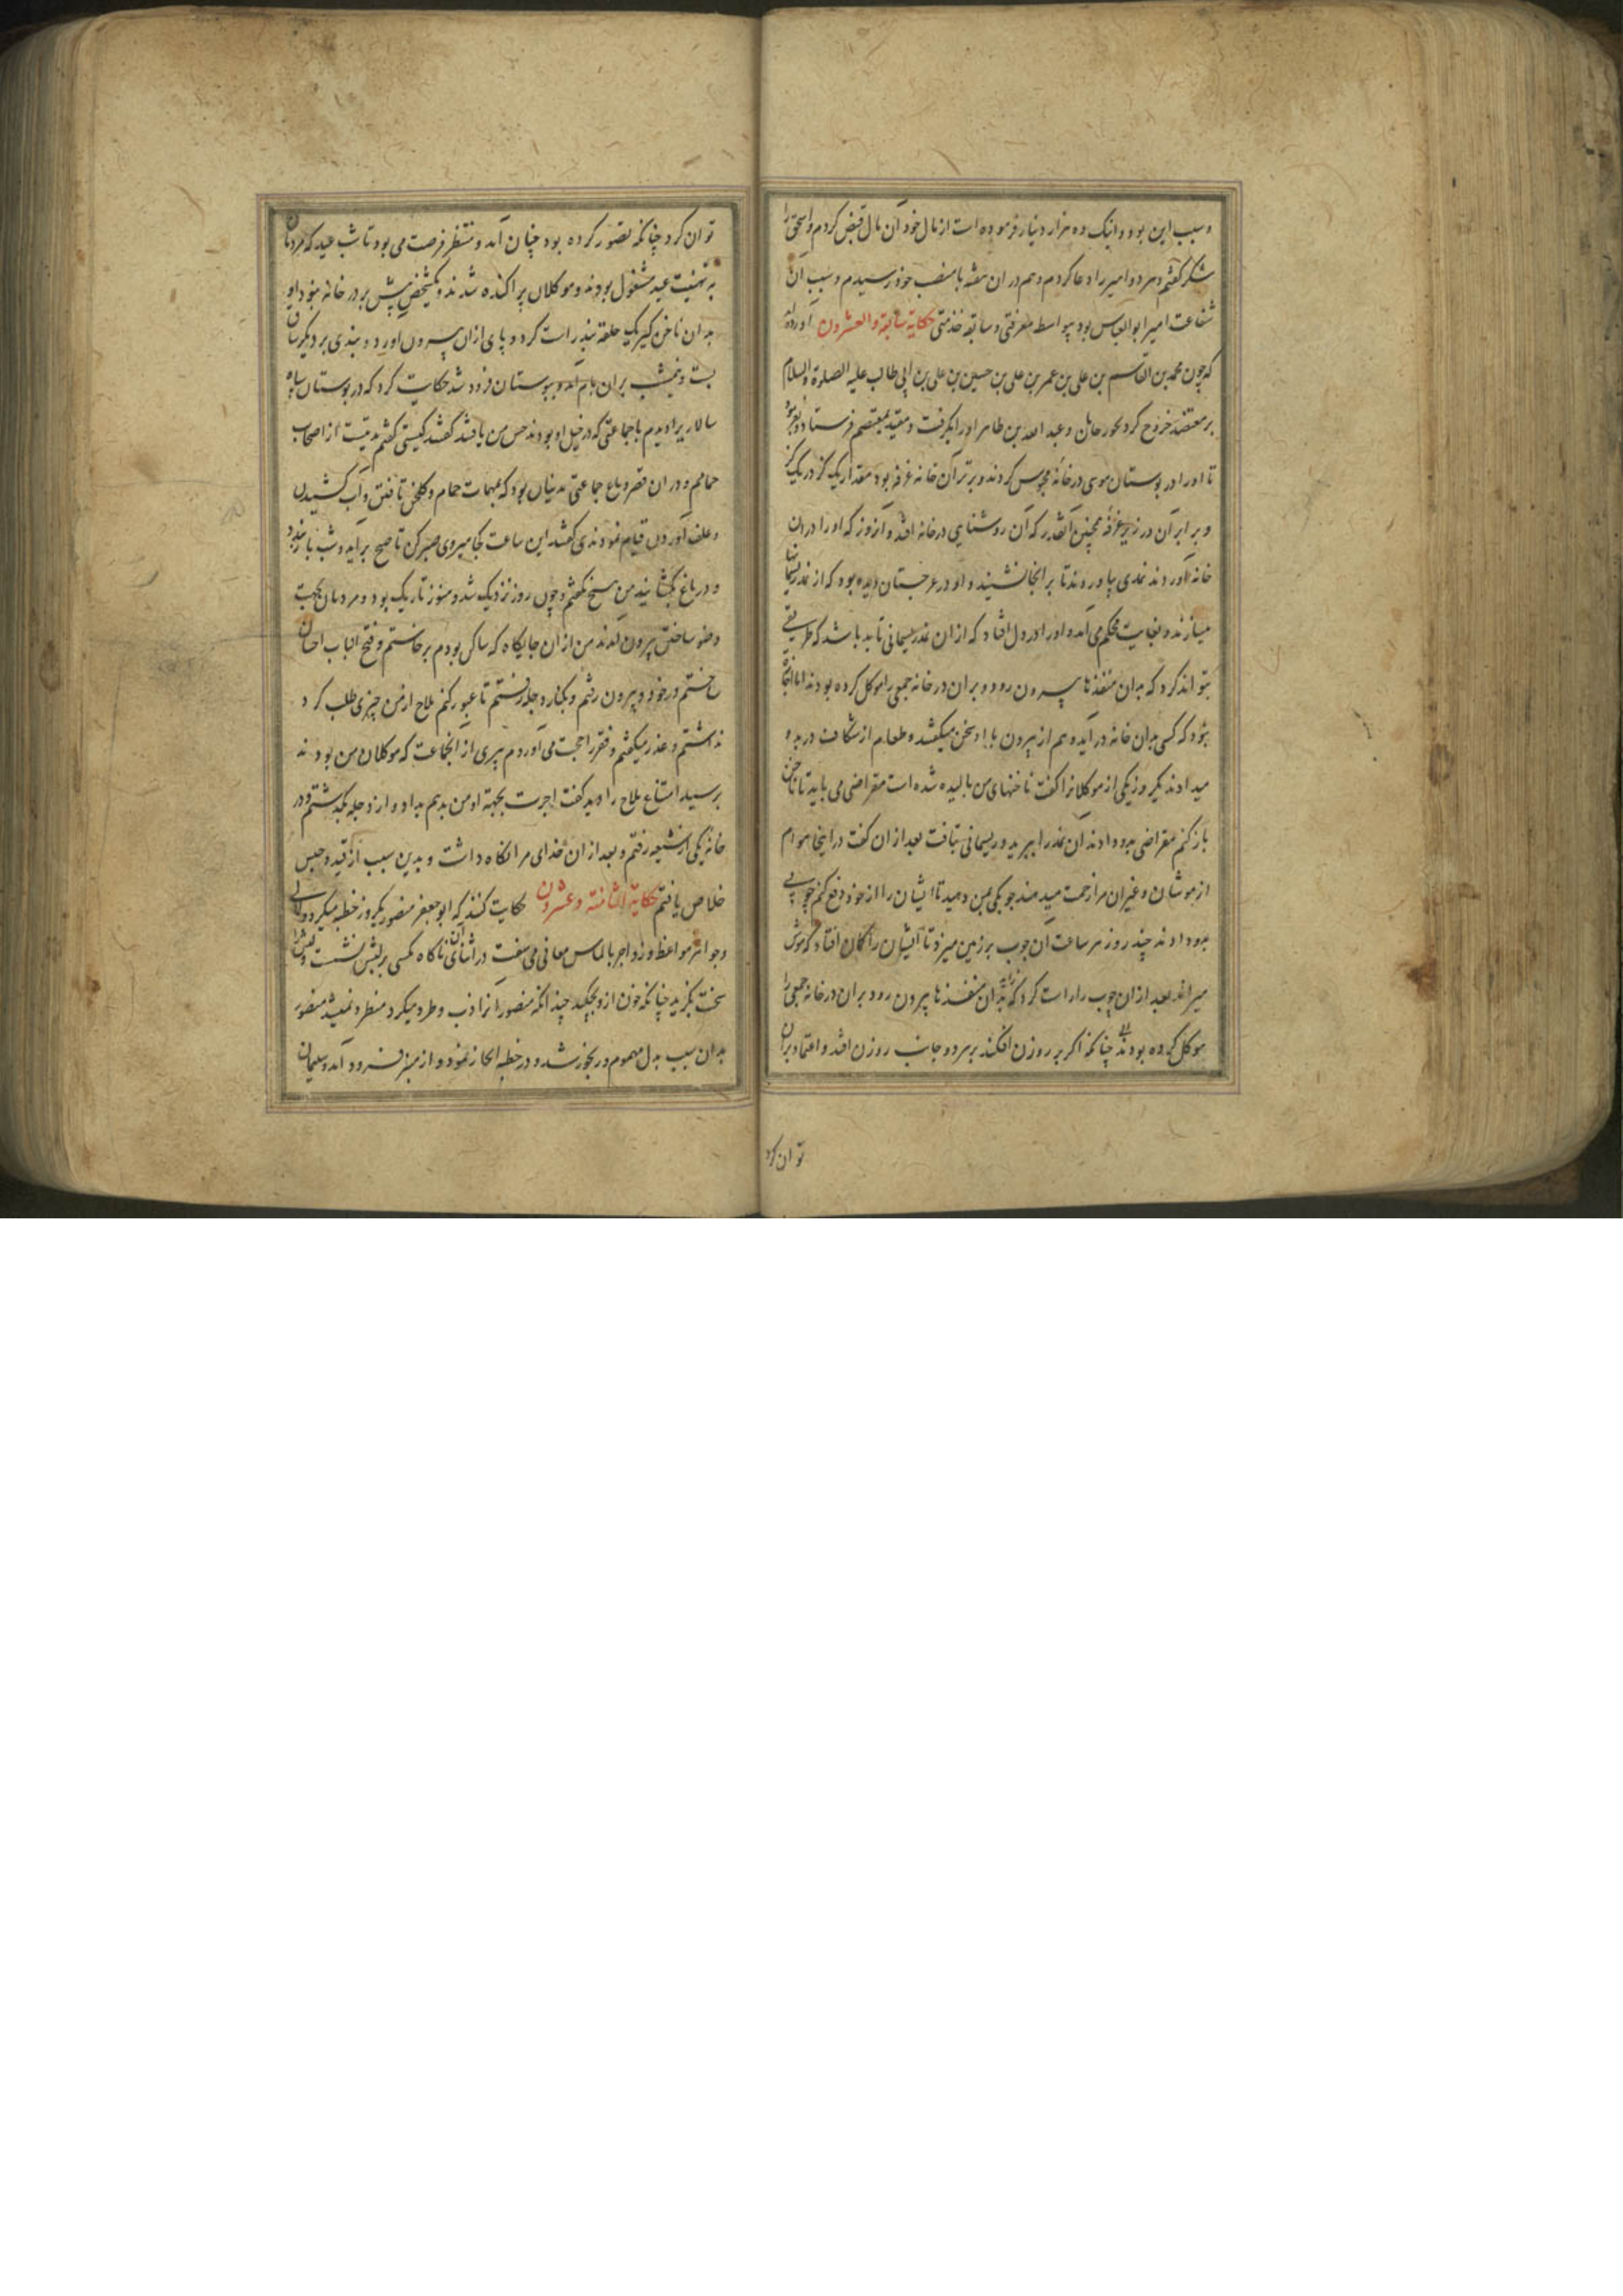 و سبب این بود و اینک ده هزار دینار فرموده است از مال خود آن مال قبض کردم و اسحق را
شکر گفتم و هر دو امیر را دعا کردم و هم در ان هفته با منصب خود رسیدم و سبب آن
شفاعت امیر ابو العباس بود بواسطه معرفتی و سابقه خدمتی حکایة سابعة والعشرون آورده‌اند
که چون محمد بن القاسم بن علی بن عمر بن علی بن حسین بن علی بن ابی طالب علیه الصلوة والسلام
بر معتصم خروج کرد بجورجان و عبد الله بن طاهر او را بگرفت و مقید بمعتصم فرستاد و بفرمود
تا او را در بوستان موسی در خانه محبوس کردند و برتر آن خانه غرفه بود مقدار یک گز در یک گز
و برابر آن در زیر غرفه همچنین آنقدر که آن روشنایی در خانه افتد و آنروز که او را دران
خانه آوردند نمدی بیاوردند تا بر انجا نشیند و او در غرجستان دیده بود که از نمد ریسمانها
میسازند و بغایت محکم می آمد و او را در دل افتاد که از ان نمد ریسمانی تابد باشد که طریقی
بتواند کرد که بدان منفذها بیرون رود و بران در خانه جمعی را موکل کرده بودند اما انجا
نبود که کسی بدان خانه در آید و هم از بیرون با او سخن میگفتند و طعام از شکاف در بدو
میدادند یکروز یکی از موکلانرا گفت ناخنهای من بالیده شده است مقراضی می باید تا ناخن
باز کنم مقراضی بدو دادند آن نمد را ببرید و ریسمانی بتافت بعد از ان گفت در اینجا هوام
از موشان و غیران مرا زحمت میدهند چوبکی بمن دهید تا ایشان را از خود دفع کنم چوبی
بدو دادند چند روز هر ساعت آن چوب بر زمین میزد تا ایشان را گمان افتاد که موش
میراند بعد از ان چوب را راست کرد که بدان منفذها بیرون رود بران در خانه جمعی را
موکل کرده بودند چنانکه اگر بر روزن افکند بر هر دو جانب روزن افتد و اعتماد بران
توان کرد
توان کرد چنانکه تصور کرده بود چنان آمد و منتظر فرصت می بود تا شب عید که مردمان
به تهنیت عید مشغول بودند و موکلان پراکنده شدند و یکشخص بیش بر در خانه نبود او
بدان ناخن گیر یک حلقه بند راست کرد و پای ازان بیرون آورد و بندی بر دیگر ساق
بست و نیمشب بران بام آمد و ببوستان فرود شد حکایت کرد که در بوستان سپاه
سالار را دیدم با جماعتی که در خیل او بودند حس من یافتند گفتند کیستی گفتم مدنیست از اصحاب
حمامم و در ان قصر و باغ جماعتی مدنیان بود که بمهمات حمام و گلخن تافتن و آب کشیدن
و علف آوردن قیام نمودندی گفتند این ساعت کجا میروی صبر کن تا صبح برآید و شب باز نبود
و در باغ بگشایند من هیچ نگفتم و چون روز نزدیک شد و هنوز تاریک بود و مردمان بجهت
وضو ساختن بیرون آمدند من از ان جایگاه که ساکن بودم برخاستم و فتح الباب احسان
ختم در خود و بیرون رفتم و بکنار دجله رفتم تا عبور کنم ملاح از من چیزی طلب کرد
نداشتم و عذر میگفتم و فقر را حجت می آوردم پیری از انجماعت که موکلان من بودند
برسید امتناع ملاح را دید گفت اجرت بجهة او من بدهم بداد و از دجله بگذشتم و در
خانه یکی از شیعه رفتم و بعد از ان خدای مرا نگاه داشت و بدین سبب از قید و حبس
خلاص یافتم حکایة الثامنة وعشرون حکایت کنند که ابو جعفر منصور یکروز خطبه میکرد و لالی
و جواهر مواعظ و زواجر بالماس معانی می سفت در اثنای آن ناگاه مگسی بر لبش نشست و لبش را
سخت بگزید چنانکه خون ازو بچکید چندانکه منصور آنرا ذب و طرد میکرد منطرد نمیشد منصور
بدان سبب بدل مهموم و رنجور شد و در خطبه ایجاز نمود و از منبر فرود آمد و سلیمان